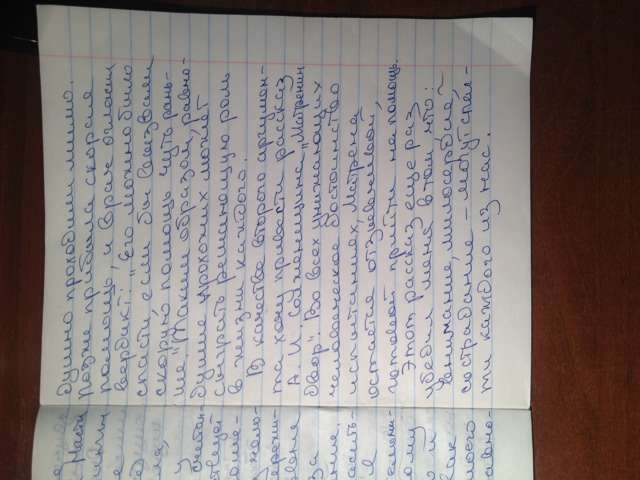 душно проходили мимо.
Позже прибыла скорая
помощь, и врач огласил
вердикт: "Его можно было
спасти, если бы вызвали
скорую помощь чуть рань-
ше." Таким образом, равно-
душие прохожих может
сыграть решающую роль
в жизни каждого.
В качестве второго аргумен-
та хочу привести рассказ
А. И. Солженицына „Матренин
двор". Во всех унижающих
человеческое достоинство
испытаниях, Матрена
остается отзывчивой,
готовой прийти на помощь.
Этот рассказ еще раз
убедил меня в том, что:
внимание, милосердие,
сострадание - могут спас-
ти каждого из нас.